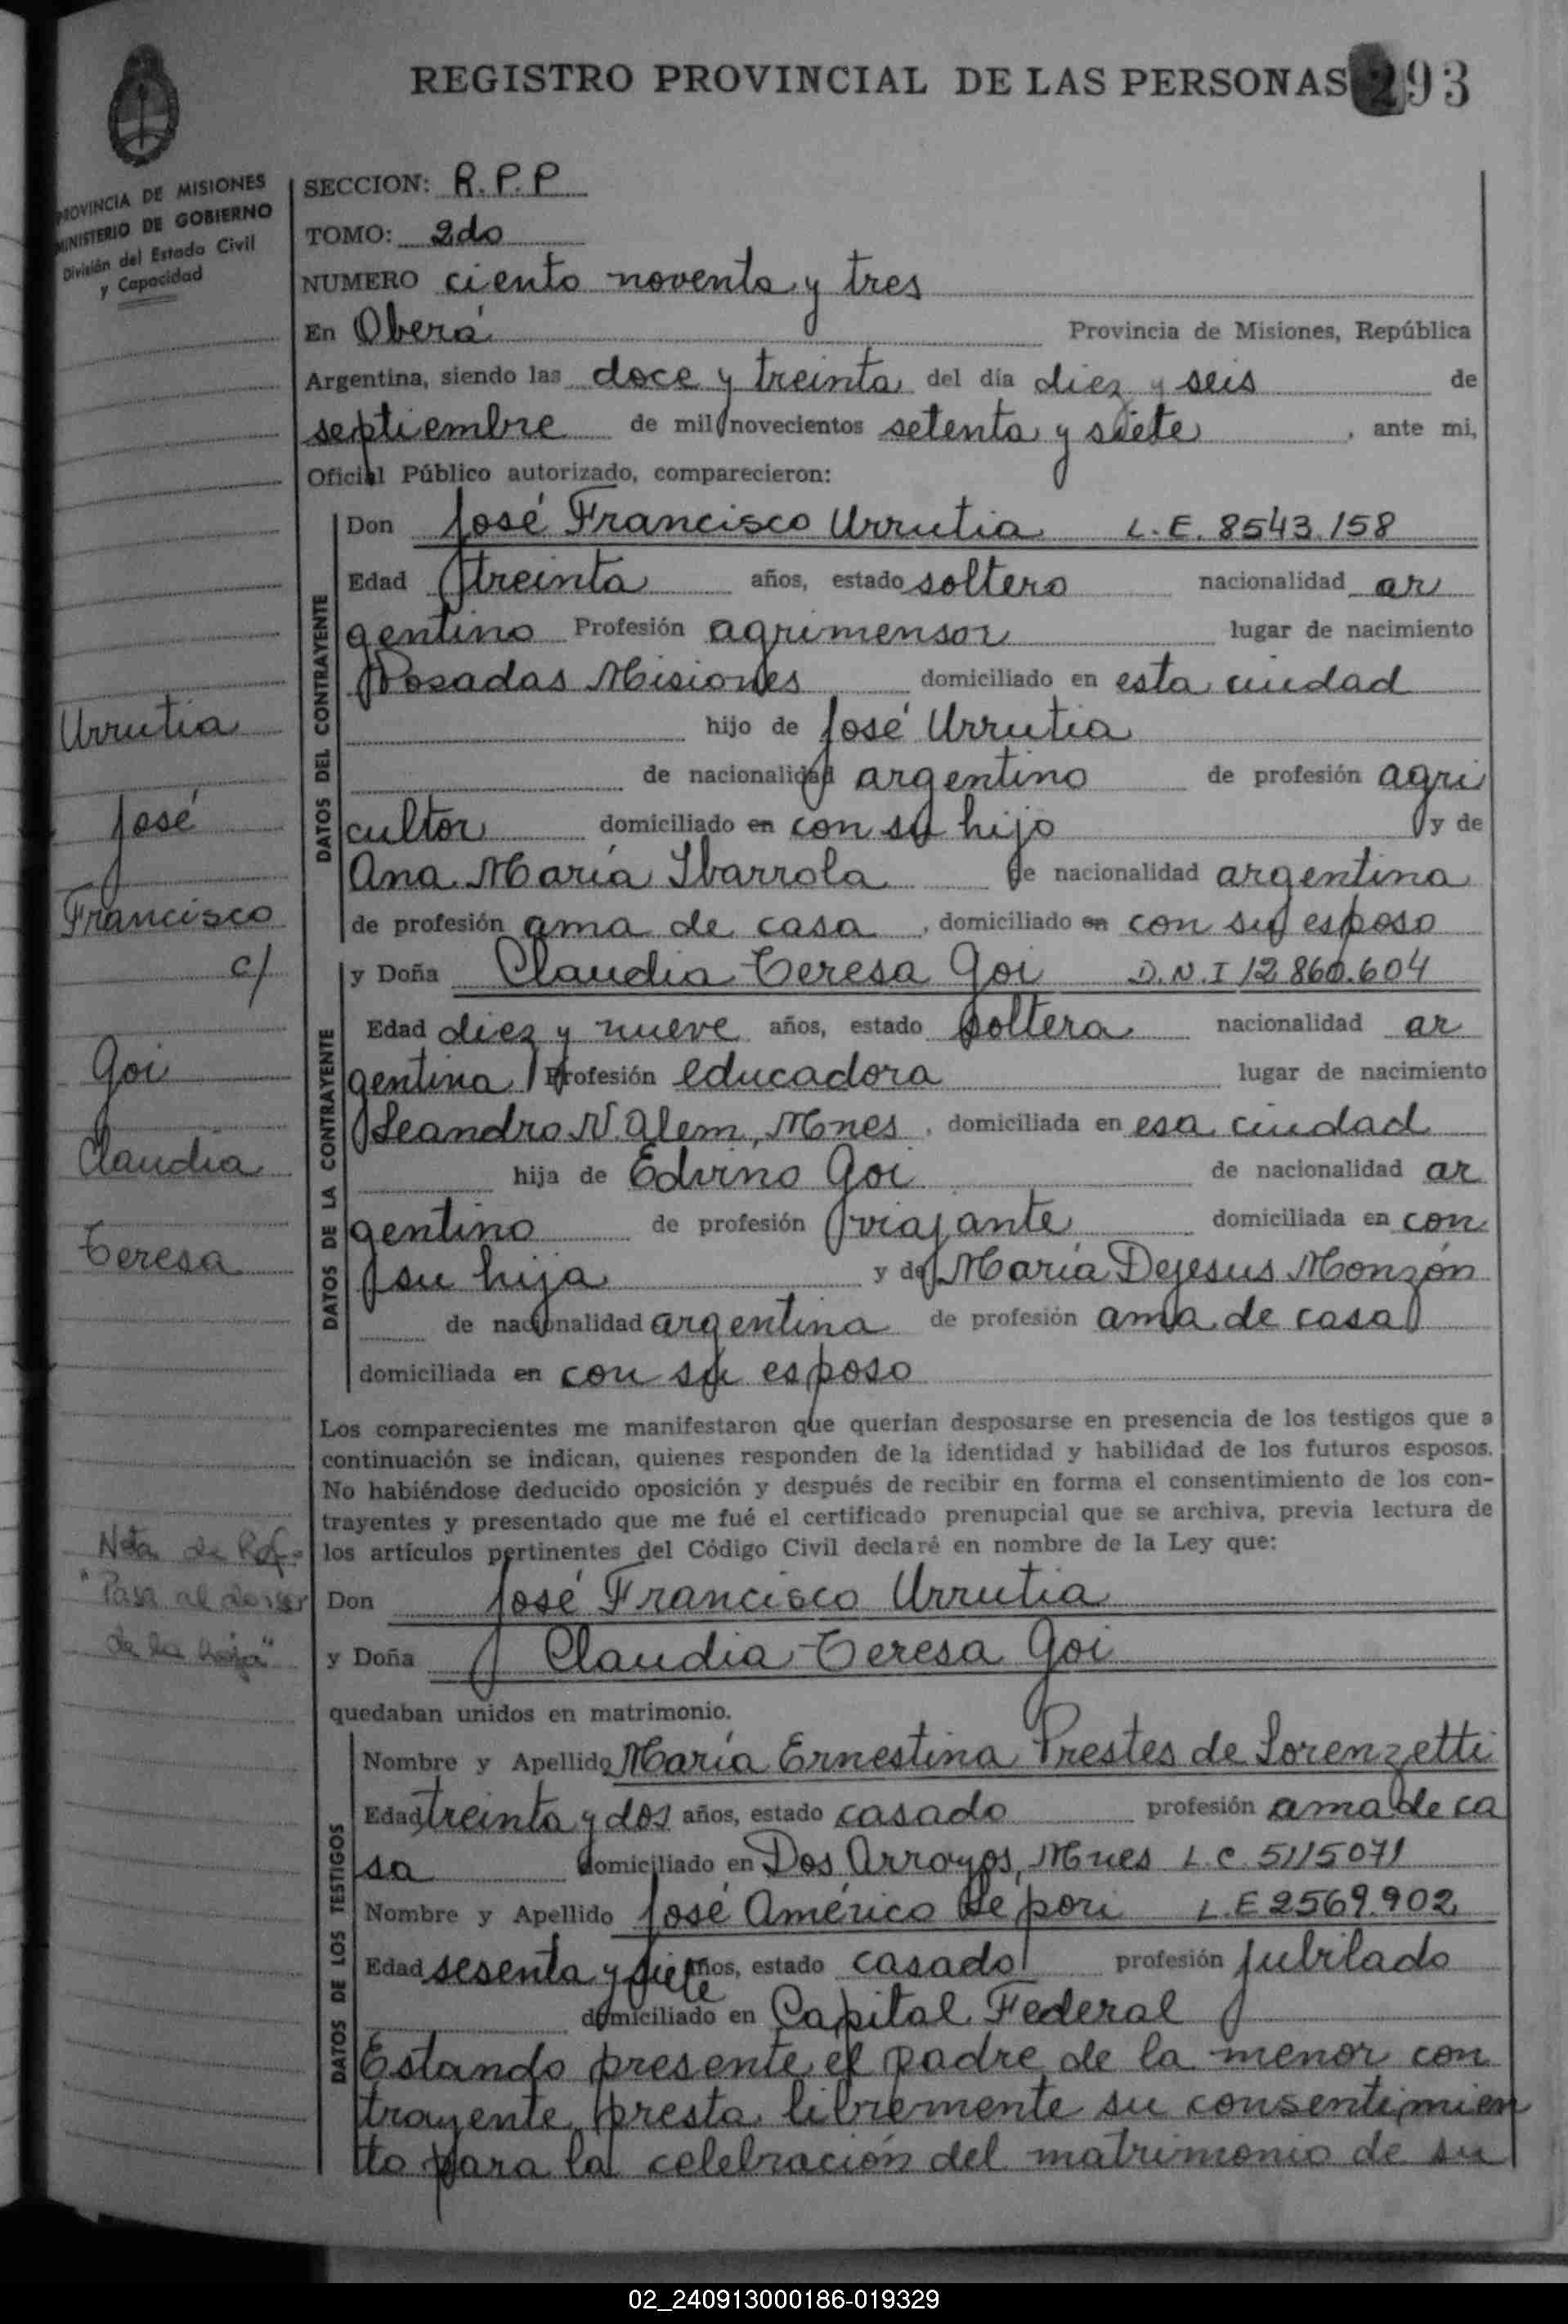 REGISTRO PROVINCIAL DE LAS PERSONAS 293
PROVINCIA DE MISIONES
MINISTERIO DE GOBIERNO
División del Estado Civil
y Capacidad
SECCION: R.P.P
TOMO: 2do
NUMERO ciento noventa y tres
En Oberá Provincia de Misiones, República
Argentina, siendo las doce y treinta del día diez y seis de
septiembre de mil novecientos setenta y siete, ante mi,
Oficial Público autorizado, comparecieron:
DATOS DEL CONTRAYENTE
Don José Francisco Urrutia L.E. 8543.158
Edad treinta años, estado soltero nacionalidad ar
gentino Profesión agrimensor lugar de nacimiento
Posadas Misiones domiciliado en esta ciudad
hijo de José Urrutia
de nacionalidad argentino de profesión agri
cultor domiciliado en con su hijo y de
Ana María Ibarrola de nacionalidad argentina
de profesión ama de casa, domiciliado en con su esposo
Urrutia
José
Francisco
c/
Goi
Claudia
Teresa
DATOS DE LA CONTRAYENTE
y Doña Claudia Teresa Goi D.N.I 12.860.604
Edad diez y nueve años, estado soltera nacionalidad ar
gentina Profesión educadora lugar de nacimiento
Leandro N. Alem, Mnes, domiciliada en esa ciudad
hija de Edvino Goi de nacionalidad ar
gentino de profesión viajante domiciliada en con
su hija y de María Dejesus Monzón
de nacionalidad argentina de profesión ama de casa
domiciliada en con su esposo
Los comparecientes me manifestaron que querían desposarse en presencia de los testigos que a
continuación se indican, quienes responden de la identidad y habilidad de los futuros esposos.
No habiéndose deducido oposición y después de recibir en forma el consentimiento de los con-
trayentes y presentado que me fué el certificado prenupcial que se archiva, previa lectura de
los artículos pertinentes del Código Civil declaré en nombre de la Ley que:
Nota de Ref.
"Pasa al dorso
de la hoja"
Don José Francisco Urrutia
y Doña Claudia Teresa Goi
quedaban unidos en matrimonio.
DATOS DE LOS TESTIGOS
Nombre y Apellido María Ernestina Prestes de Lorenzetti
Edad treinta y dos años, estado casado profesión ama de ca
sa domiciliado en Dos Arroyos, Mnes L.C. 5115071
Nombre y Apellido José Américo Depori L.E 2569.902
Edad sesenta y siete años, estado casado profesión jubilado
domiciliado en Capital Federal
Estando presente el padre de la menor con
trayente presta libremente su consentimien
to para la celebración del matrimonio de su
02_240913000186-019329